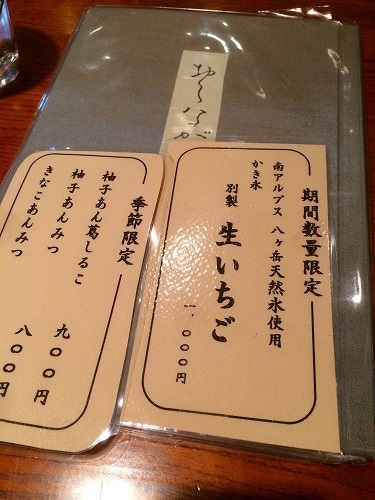 期間数量限定
南アルプス 八ヶ岳天然氷使用
かき氷
別製 生いちご
一、〇〇〇円
季節限定
柚子あん葛しるこ
九〇〇円
柚子あんみつ
きなこあんみつ
八〇〇円